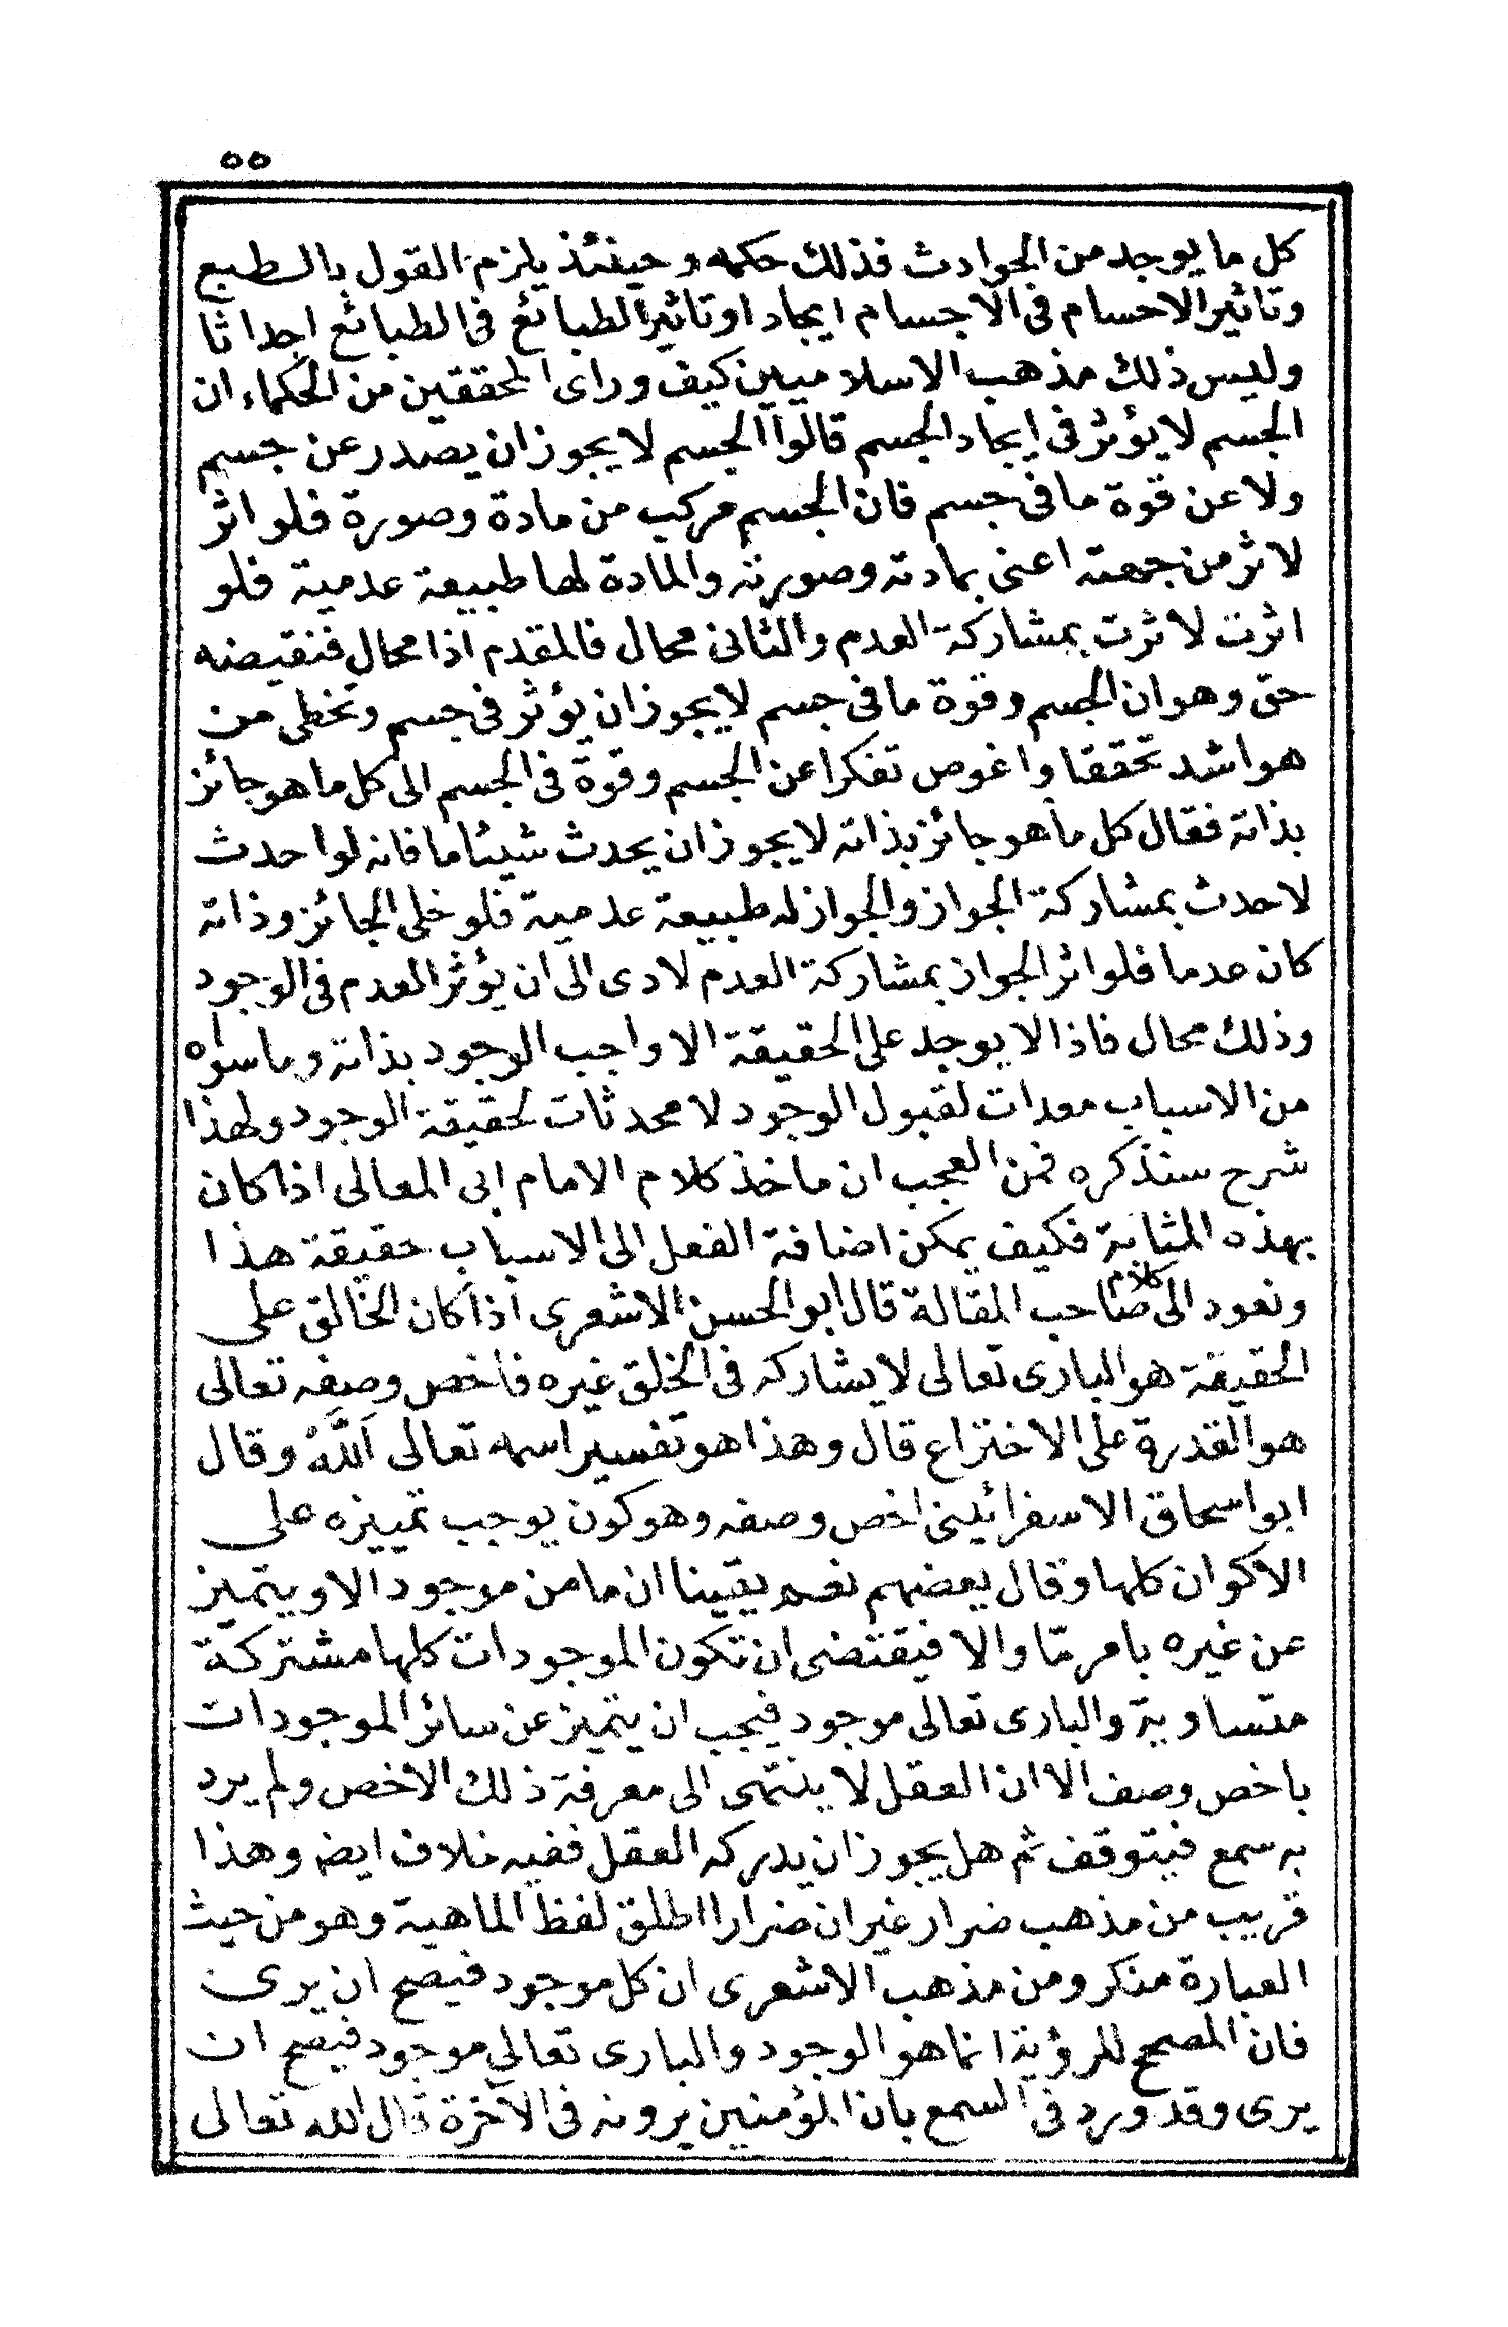 ٥٥
كل ما يوجد من الجوادث فذلك حكمه وحينئذ يلزم القول بالطبع
وتاثير الاحسام فى الاجسام ايجادا وتاثير الطبائع فى الطبائع احداثا
وليس ذلك مذهب الاسلاميين كيف وراى المحققين من الحكماء ان
الجسم لا يؤثر فى ايجاد الجسم قالوا الجسم لا يجوز ان يصدر عن جسم
ولا عن قوة ما فى جسم فان الجسم مركب من مادة وصورة فلو اثر
لاثر من جهته اعنى بمادته وصورته والمادة لها طبيعة عدمية فلو
اثرت لاثرت بمشاركة العدم والثانى محال فالمقدم اذا محال فنقيضه
حق وهو ان الجسم وقوة ما فى جسم لا يجوز ان يؤثر فى جسم وتخطى من
هو اشد تحققا واغوص تفكرا عن الجسم وقوة فى الجسم الى كل ما هو جائز
بذاته فقال كل ما هو جائز بذاته لا يجوز ان يحدث شيئا ما فانه لو احدث
لاحدث بمشاركة الجواز والجواز له طبيعة عدمية فلو خلى الجائز وذاته
كان عدما فلو اثر الجواز بمشاركة العدم لادى الى ان يؤثر العدم فى الوجود
وذلك محال فاذا لا يوجد على الحقيقة الا واجب الوجود بذاته وما سواه
من الاسباب معدات لقبول الوجود لا محدثات لحقيقة الوجود ولهذا
شرح سنذكره فمن العجب ان ماخذ كلام الامام ابى المعالى اذا كان
بهذه المثابة فكيف يمكن اضافة الفعل الى الاسباب حقيقة هذا
ونعود الى كلام صاحب المقالة قال ابو الحسن الاشعرى اذا كان الخالق على
الحقيقة هو البارى تعالى لا يشاركه فى الخلق غيره فاخص وصفه تعالى
هو القدرة على الاختراع قال وهذا هو تفسير اسمه تعالى اَللّٰهُ وقال
ابو اسحاق الاسفرائينى اخص وصفه وهو كون يوجب تمييزه على
الاكوان كلها وقال بعضهم نعم يقينا ان ما من موجود الا ويتميز
عن غيره بامر مّا والا فيقتضى ان تكون الموجودات كلها مشتركة
متساوية والبارى تعالى موجود فيجب ان يتميز عن سائر الموجودات
باخص وصف الا ان العقل لا ينتهى الى معرفة ذلك الاخص ولم يرد
به سمع فيتوقف ثم هل يجوز ان يدركه العقل ففيه خلاف ايضه وهذا
قريب من مذهب ضرار غير ان ضرارا اطلق لفظ الماهية وهو من حيث
العبارة منكر ومن مذهب الاشعرى ان كل موجود فيصح ان يرى
فان المصحح للرؤية انما هو الوجود والبارى تعالى موجود فيصح ان
يرى وقد ورد فى السمع بان المؤمنين يرونه فى الآخرة قال الله تعالى